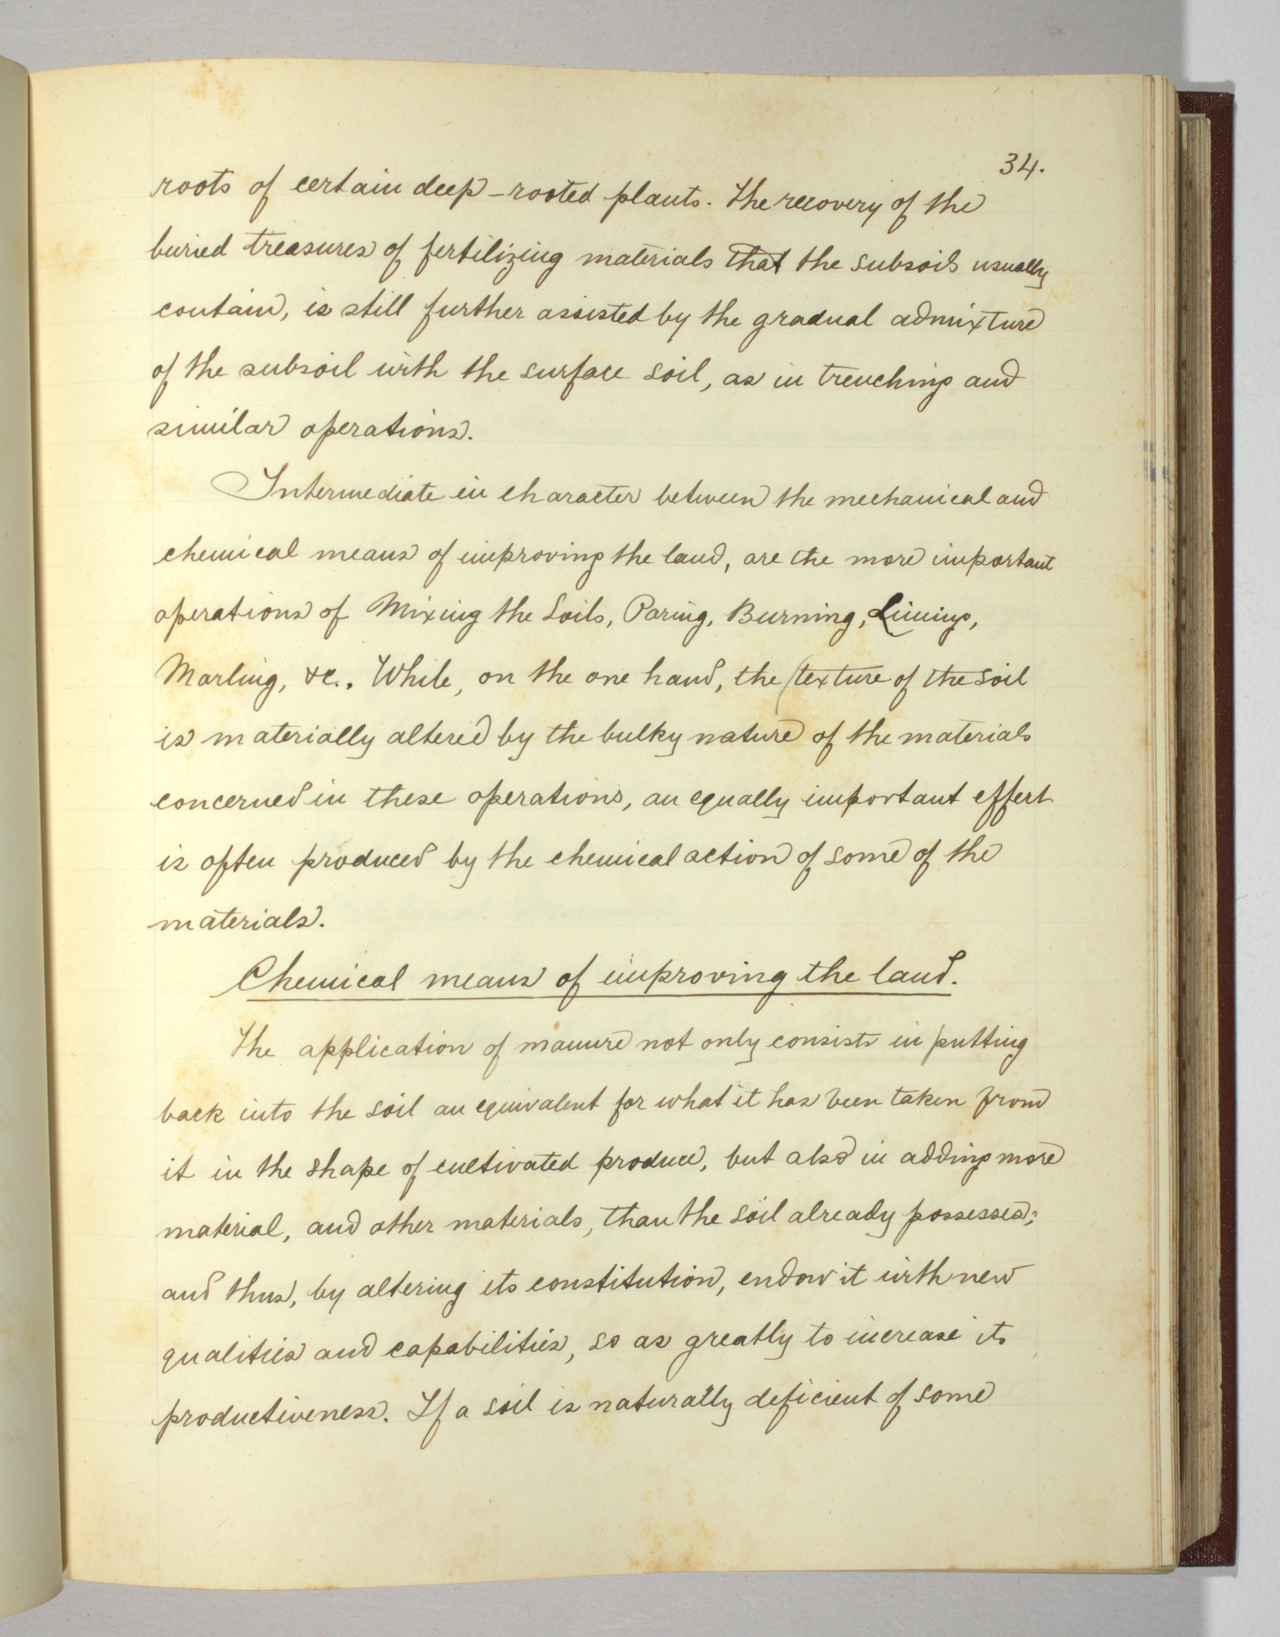 34.
roots of certain deep-rooted plants. The recovery of the
buried treasures of fertilizing materials that the subsoils usually
contain, is still further assisted by the gradual admixture
of the subsoil with the surface soil, as in trenching and
similar operations.
Intermediate in character between the mechanical and
chemical means of improving the land, are the more important
operations of Mixing the Soils, Paring, Burning, Liming,
Marling, &c.. While, on the one hand, the texture of the soil
is materially altered by the bulky nature of the materials
concerned in these operations, an equally important effect
is often produced by the chemical action of some of the
materials.
Chemical means of improving the land.
The application of manure not only consists in putting
back into the soil an equivalent for what it has been taken from
it in the shape of cultivated produce, but also in adding more
material, and other materials, than the soil already possesses;
and thus, by altering its constitution, endow it with new
qualities and capabilities, so as greatly to increase its
productiveness. If a soil is naturally deficient of some